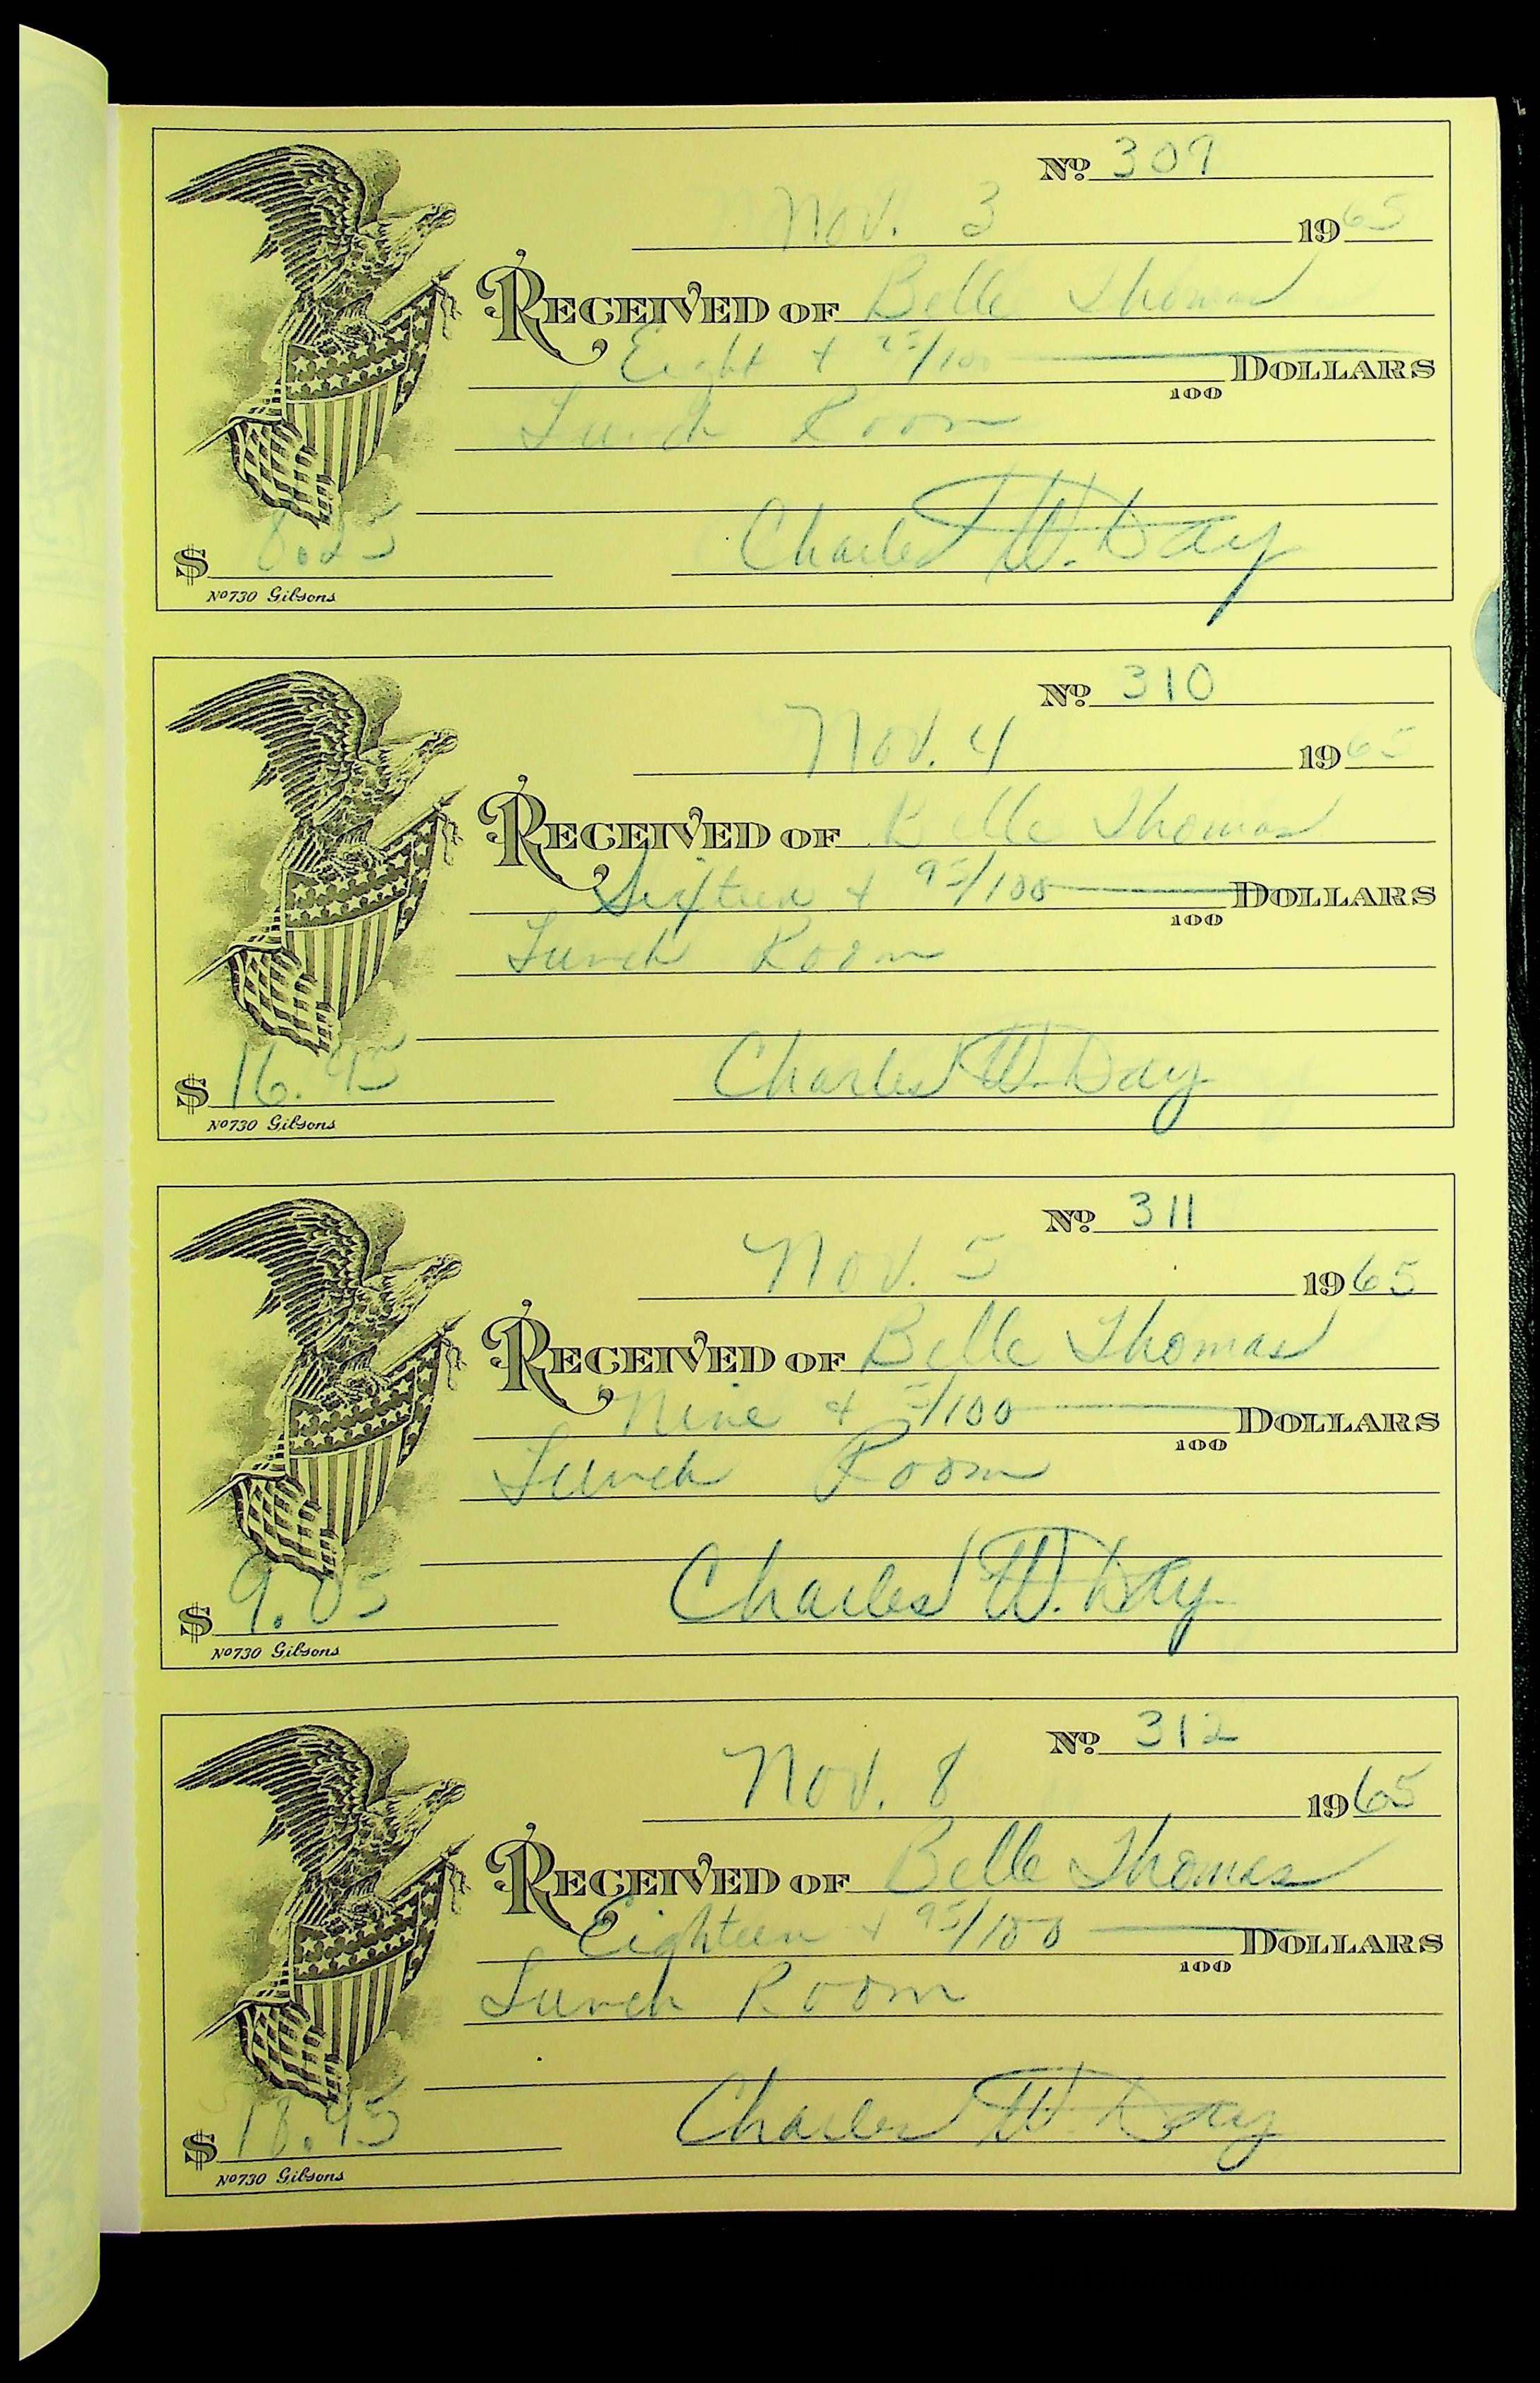 Nº 309
Nov. 3 1965
RECEIVED OF Belle Thomas
Eight & 25/100 DOLLARS
100
Lunch Room
$ 8.25 Charles W. Day
Nº 730 Gibsons
Nº 310
Nov. 4 1965
RECEIVED OF Belle Thomas
Sixteen & 95/100 DOLLARS
100
Lunch Room
$ 16.95 Charles W. Day
Nº 730 Gibsons
Nº 311
Nov. 5 1965
RECEIVED OF Belle Thomas
Nine & 5/100 DOLLARS
100
Lunch Room
$ 9.05 Charles W. Day
Nº 730 Gibsons
Nº 312
Nov. 8 1965
RECEIVED OF Belle Thomas
Eighteen & 95/100 DOLLARS
100
Lunch Room
$ 18.95 Charles W. Day
Nº 730 Gibsons